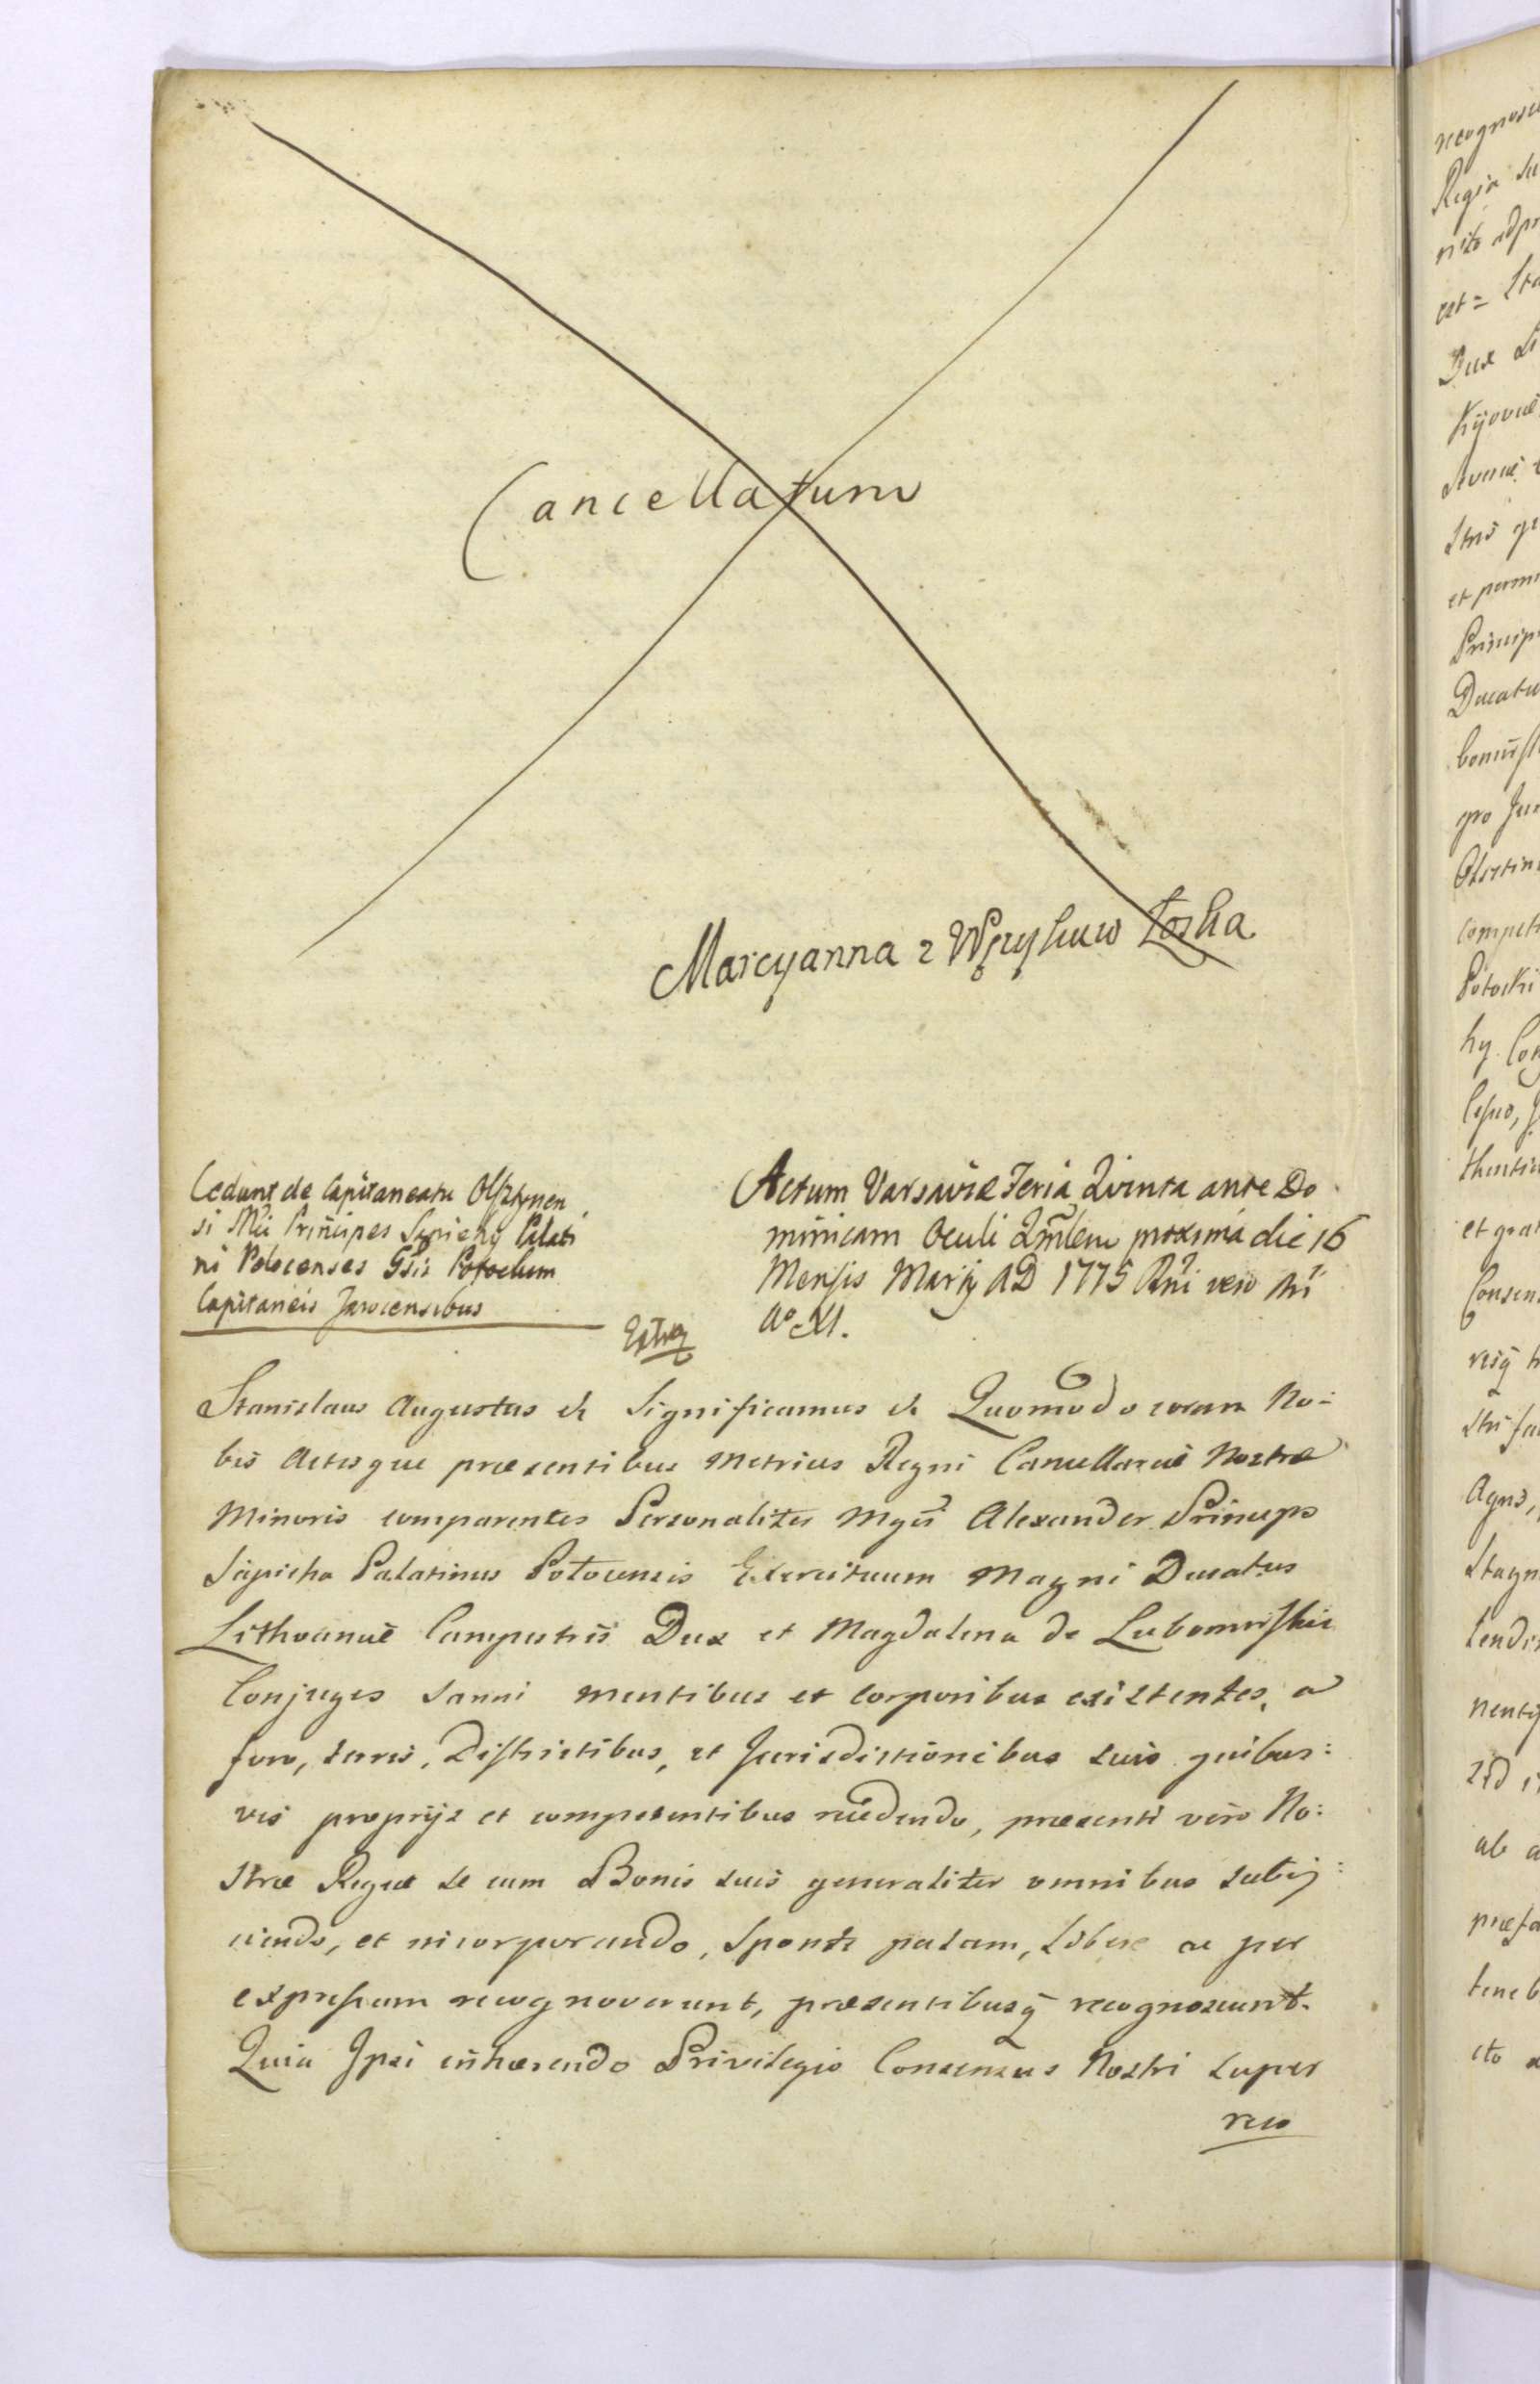 Cancellatum
Marcyanna z Węzykuw Łoska
Cedunt de Capitaneatu Olsztynen
si Mci Principes Sapiehy Palati
ni Polocenses Gsis Potockim
Capitaneis Jarocensibus
Extra
Actum Varsaviæ Feria Quinta ante Do
minicam Oculi Qmlem proxima die 16
Mensis Marty AD 1775 Rñi vero Nri
Aº XI.
Stanislaus Augustus & Significamus & Quomodo coram No=
bis Actisque præsentibus Metrices Regni Cancellariæ Nostræ
Minoris comparentes Personaliter Mgci Alexander Princeps
Sapieha Palatinus Polocensis Exercituum Magni Ducatus
Lithvaniæ Campestris Dux et Magdalena de Lubomirskie
Conjuges sanni mentibus et corporibus existentes, a
foro, terris, Districtibus, et Jurisdictionibus suis quibus:
vis proprijs et competentibus recedendo, præsenti vero No:
stræ Regiæ se cum Bonis suis generaliter omnibus subij:
ciendo, et incorporando, Sponte palam, Libere ac per
expressum recognoverunt, præsentibusq recognoscunt.
Quia Ipsi inhærendo Privilegio Consensus Nostri super
reco
recognosc
Regia su
Dux Li
Kijoviæ
et permi
Princip
Ducatu
pro Jur
Olsztin
compet
Potocki
et grat
Consen
Agris,
Stagn
ab a
præfa